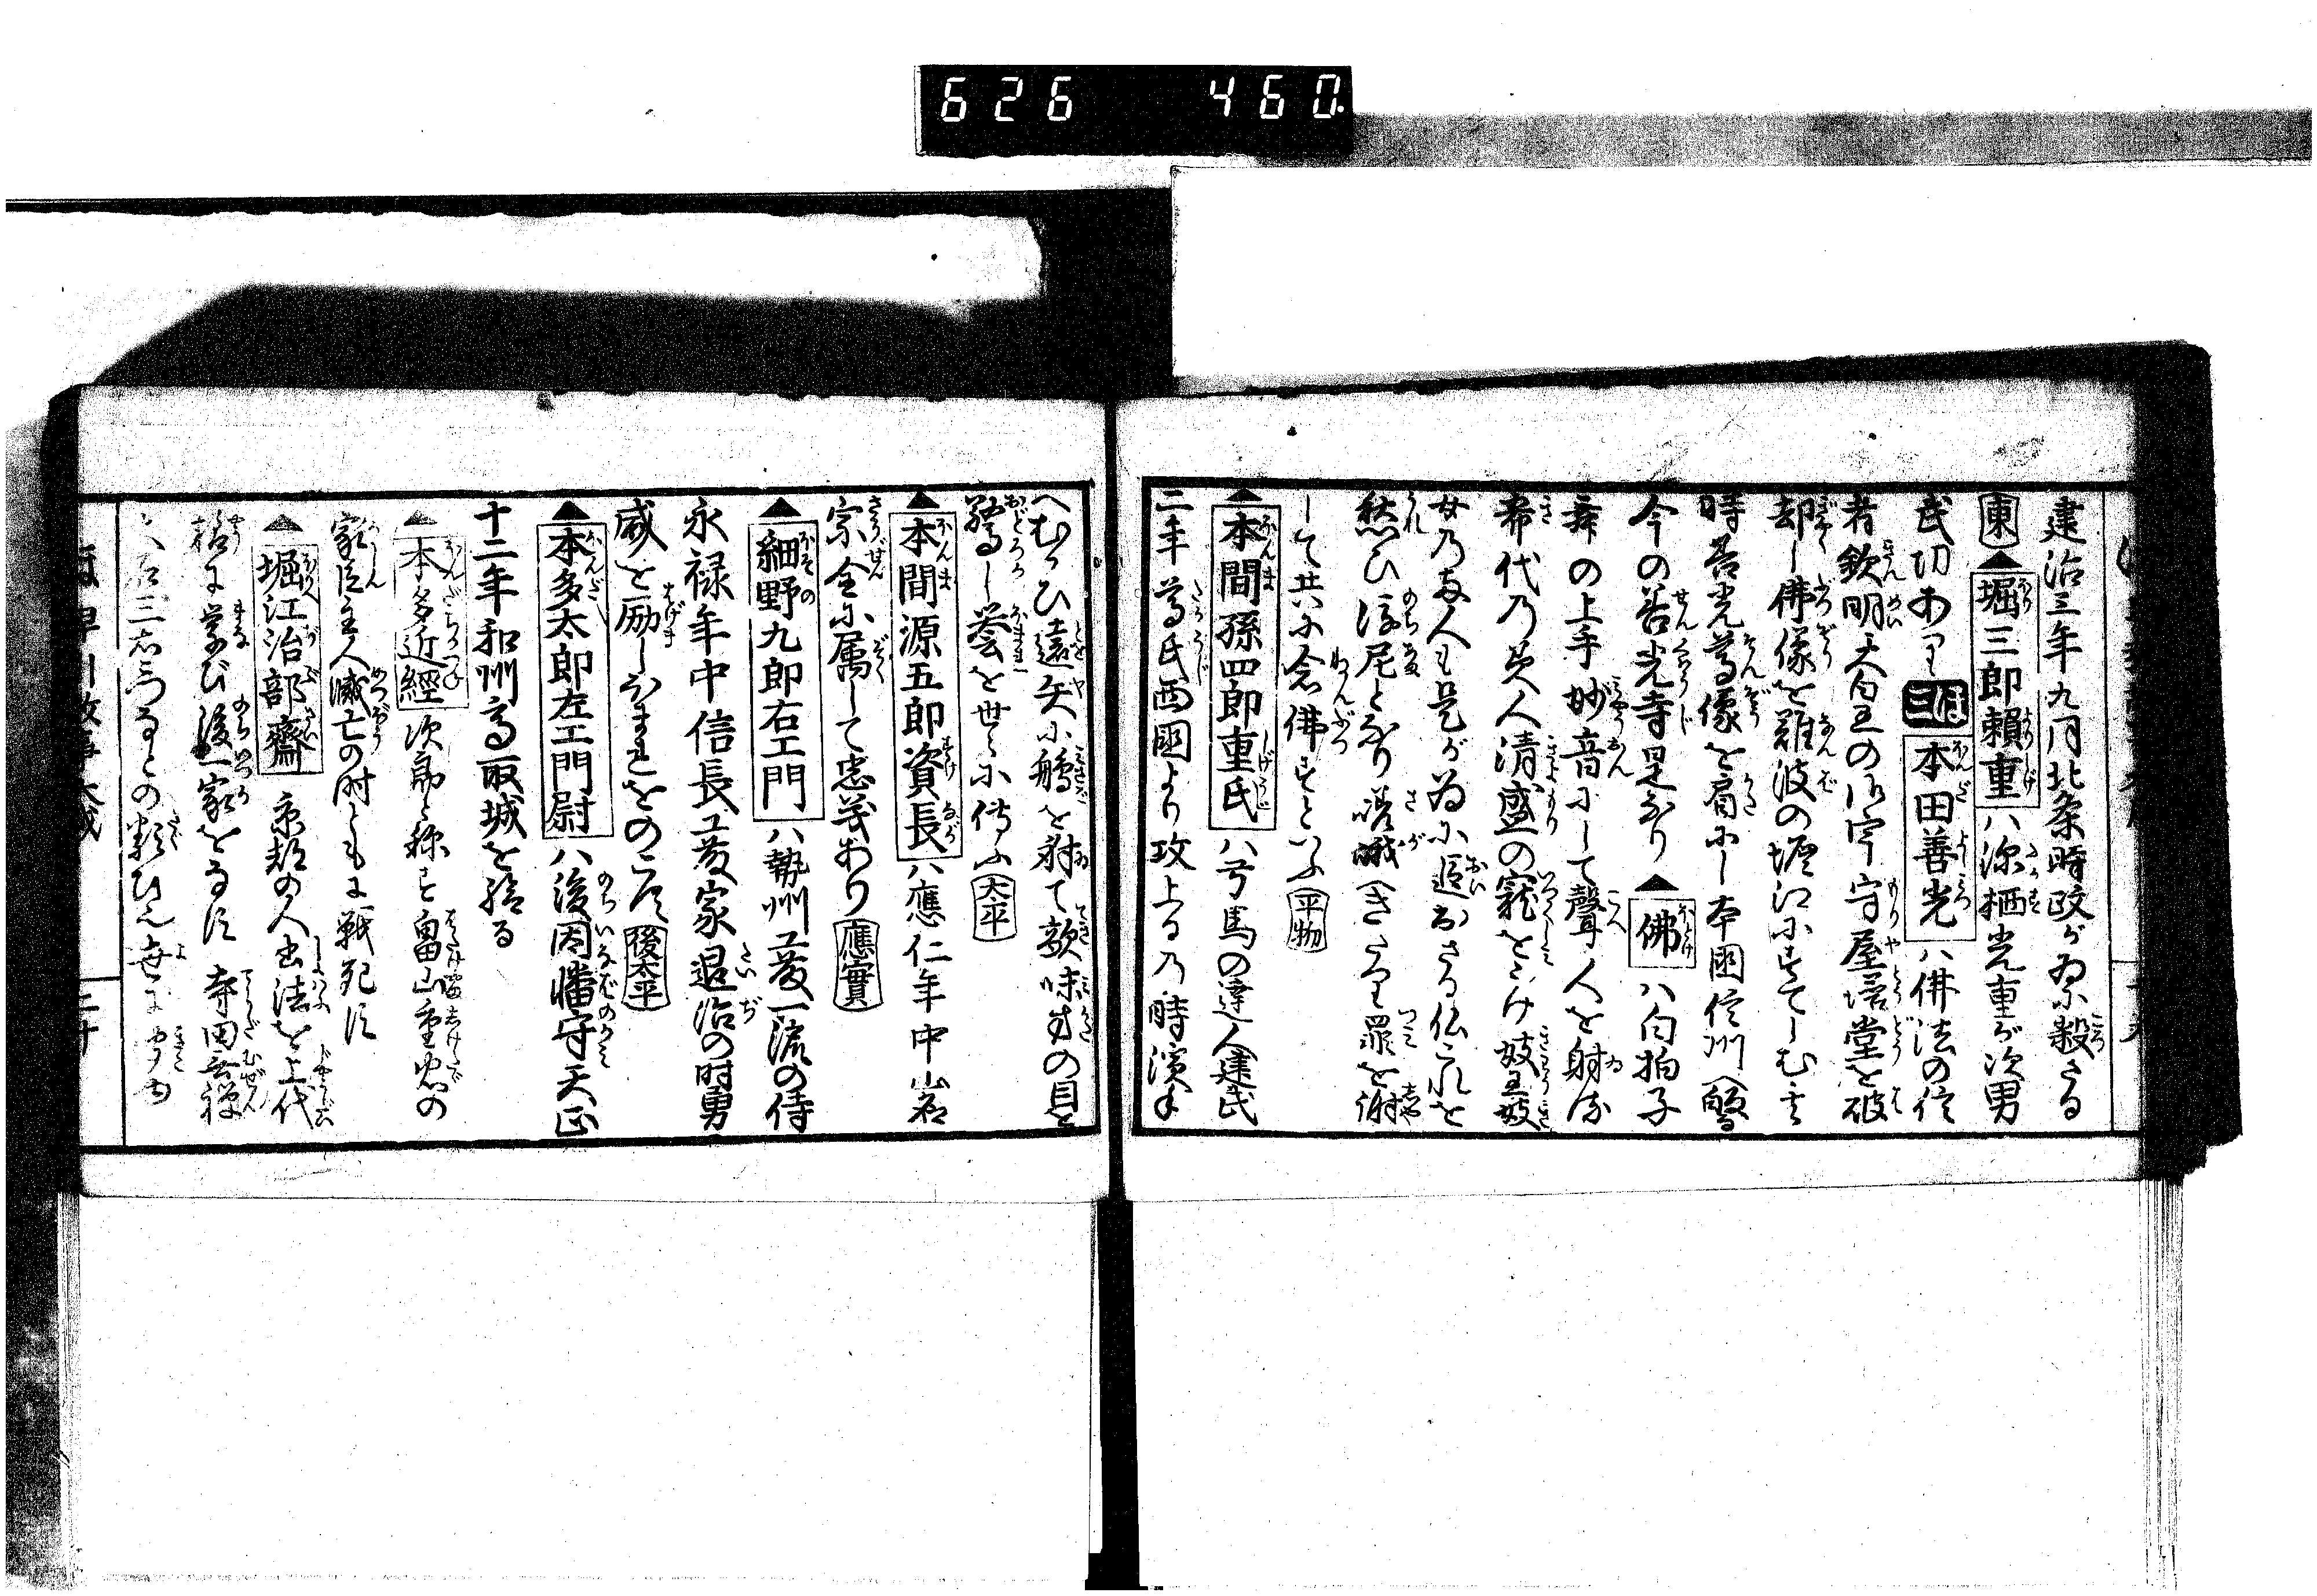 626 460
建治三年九月北条時政が為に殺さる
東▲堀三郎頼重ハ深栖光重が次男
武功あり 本田善光ハ佛法の信
者欽明天皇の御宇守屋塔堂を破
却し佛像を難波の堀江にすてしむ其
時善光尊像を肩にし本国信州へ皈る
今の善光寺是なり▲佛ハ白拍子
舞の上手妙音にして聲人を射る
希代乃美人清盛の寵をうけ妓王妓
女乃両人も是が為に追出さる仏これを
愁ひ後尼となり嵯峨へきたり罪を謝
して共に念佛すといふ平物
▲本間孫四郎重氏ハ弓馬の達人建武
二年尊氏西国より攻上る乃時濱手
へむかひ遠矢に鵃を射て敵味方の目を
驚し誉を世々に傳ふ太平
▲本間源五郎資長ハ應仁年中山名
宗全に属して忠義あり應實
▲細野九郎右エ門ハ勢州工藤一流の侍
永禄年中信長工藤家退治の時勇
威を励しほまれをのこす後太平
▲本多太郎左エ門尉ハ後因幡守天正
十二年和州高取城を給る
▲本多近經次郎と称す畠山重忠の
家臣主人滅亡の時ともに戦死す
▲堀江治部齋京都の人書法を上代
様に学び後一家をなす寺田無禅